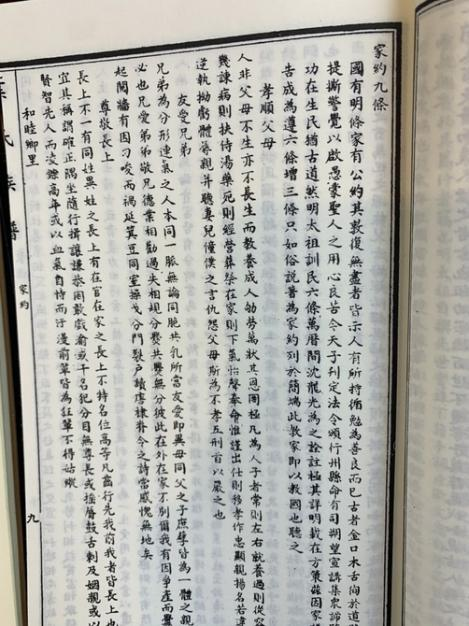 家約九條
國有明條家有公約其敦復無盡者皆示人有所持循勉為善良而已古者金口木舌徇於道
提撕警覺以啟愚蒙聖人之用心良苦今天子刊定法令頒行州縣命有司朔望宣講集衆諦
功在生民猶古道然明太祖訓民六條萬曆間沈龍光為之詮註極其詳明載在方策茲因家
告成為遵六條增三條只如俗說著為家約列於簡端此教家即以教國也聽之
孝順父母
人非父母不生亦不長生而教養成人劬勞萬狀其恩罔極凡為人子者常則左右就養過則從容
幾諫病則扶侍湯藥死則經營葬祭在家則下氣怡聲奉命惟謹出仕則移孝作忠顯親揚名若違
逆執拗虧體辱親并聽妻兒僮僕之言仇怨父母斯為不孝五刑首以嚴之也
友愛兄弟
兄弟為分形連氣之人本同一脈無論同胞共乳所當友愛即異母同父之子庶孽皆為一體之親
必也兄愛弟弟敬兄德業相勸過失相規分勞共爨無分彼此在外在家不別爾我有因爭產而釁
起鬩牆有因刃唆而禍延箕豆同室操戈分門裂戶讀棣棣脊令之詩當感愧無地矣
尊敬長上
長上不一有同姓異姓之長上有在官在家之長上不特名位高等凡齒行先我前我者皆長上也
宜其稱謂確正隅坐隨行揖讓謙敬罔敢戲渝或干名犯分目無尊長或搖唇鼓舌刺及姻親或以
賢智先人而凌鑠高年或以血氣自恃而汙漫前輩皆為狂單不得姑縱
和睦鄉里
氏族譜
家約
九